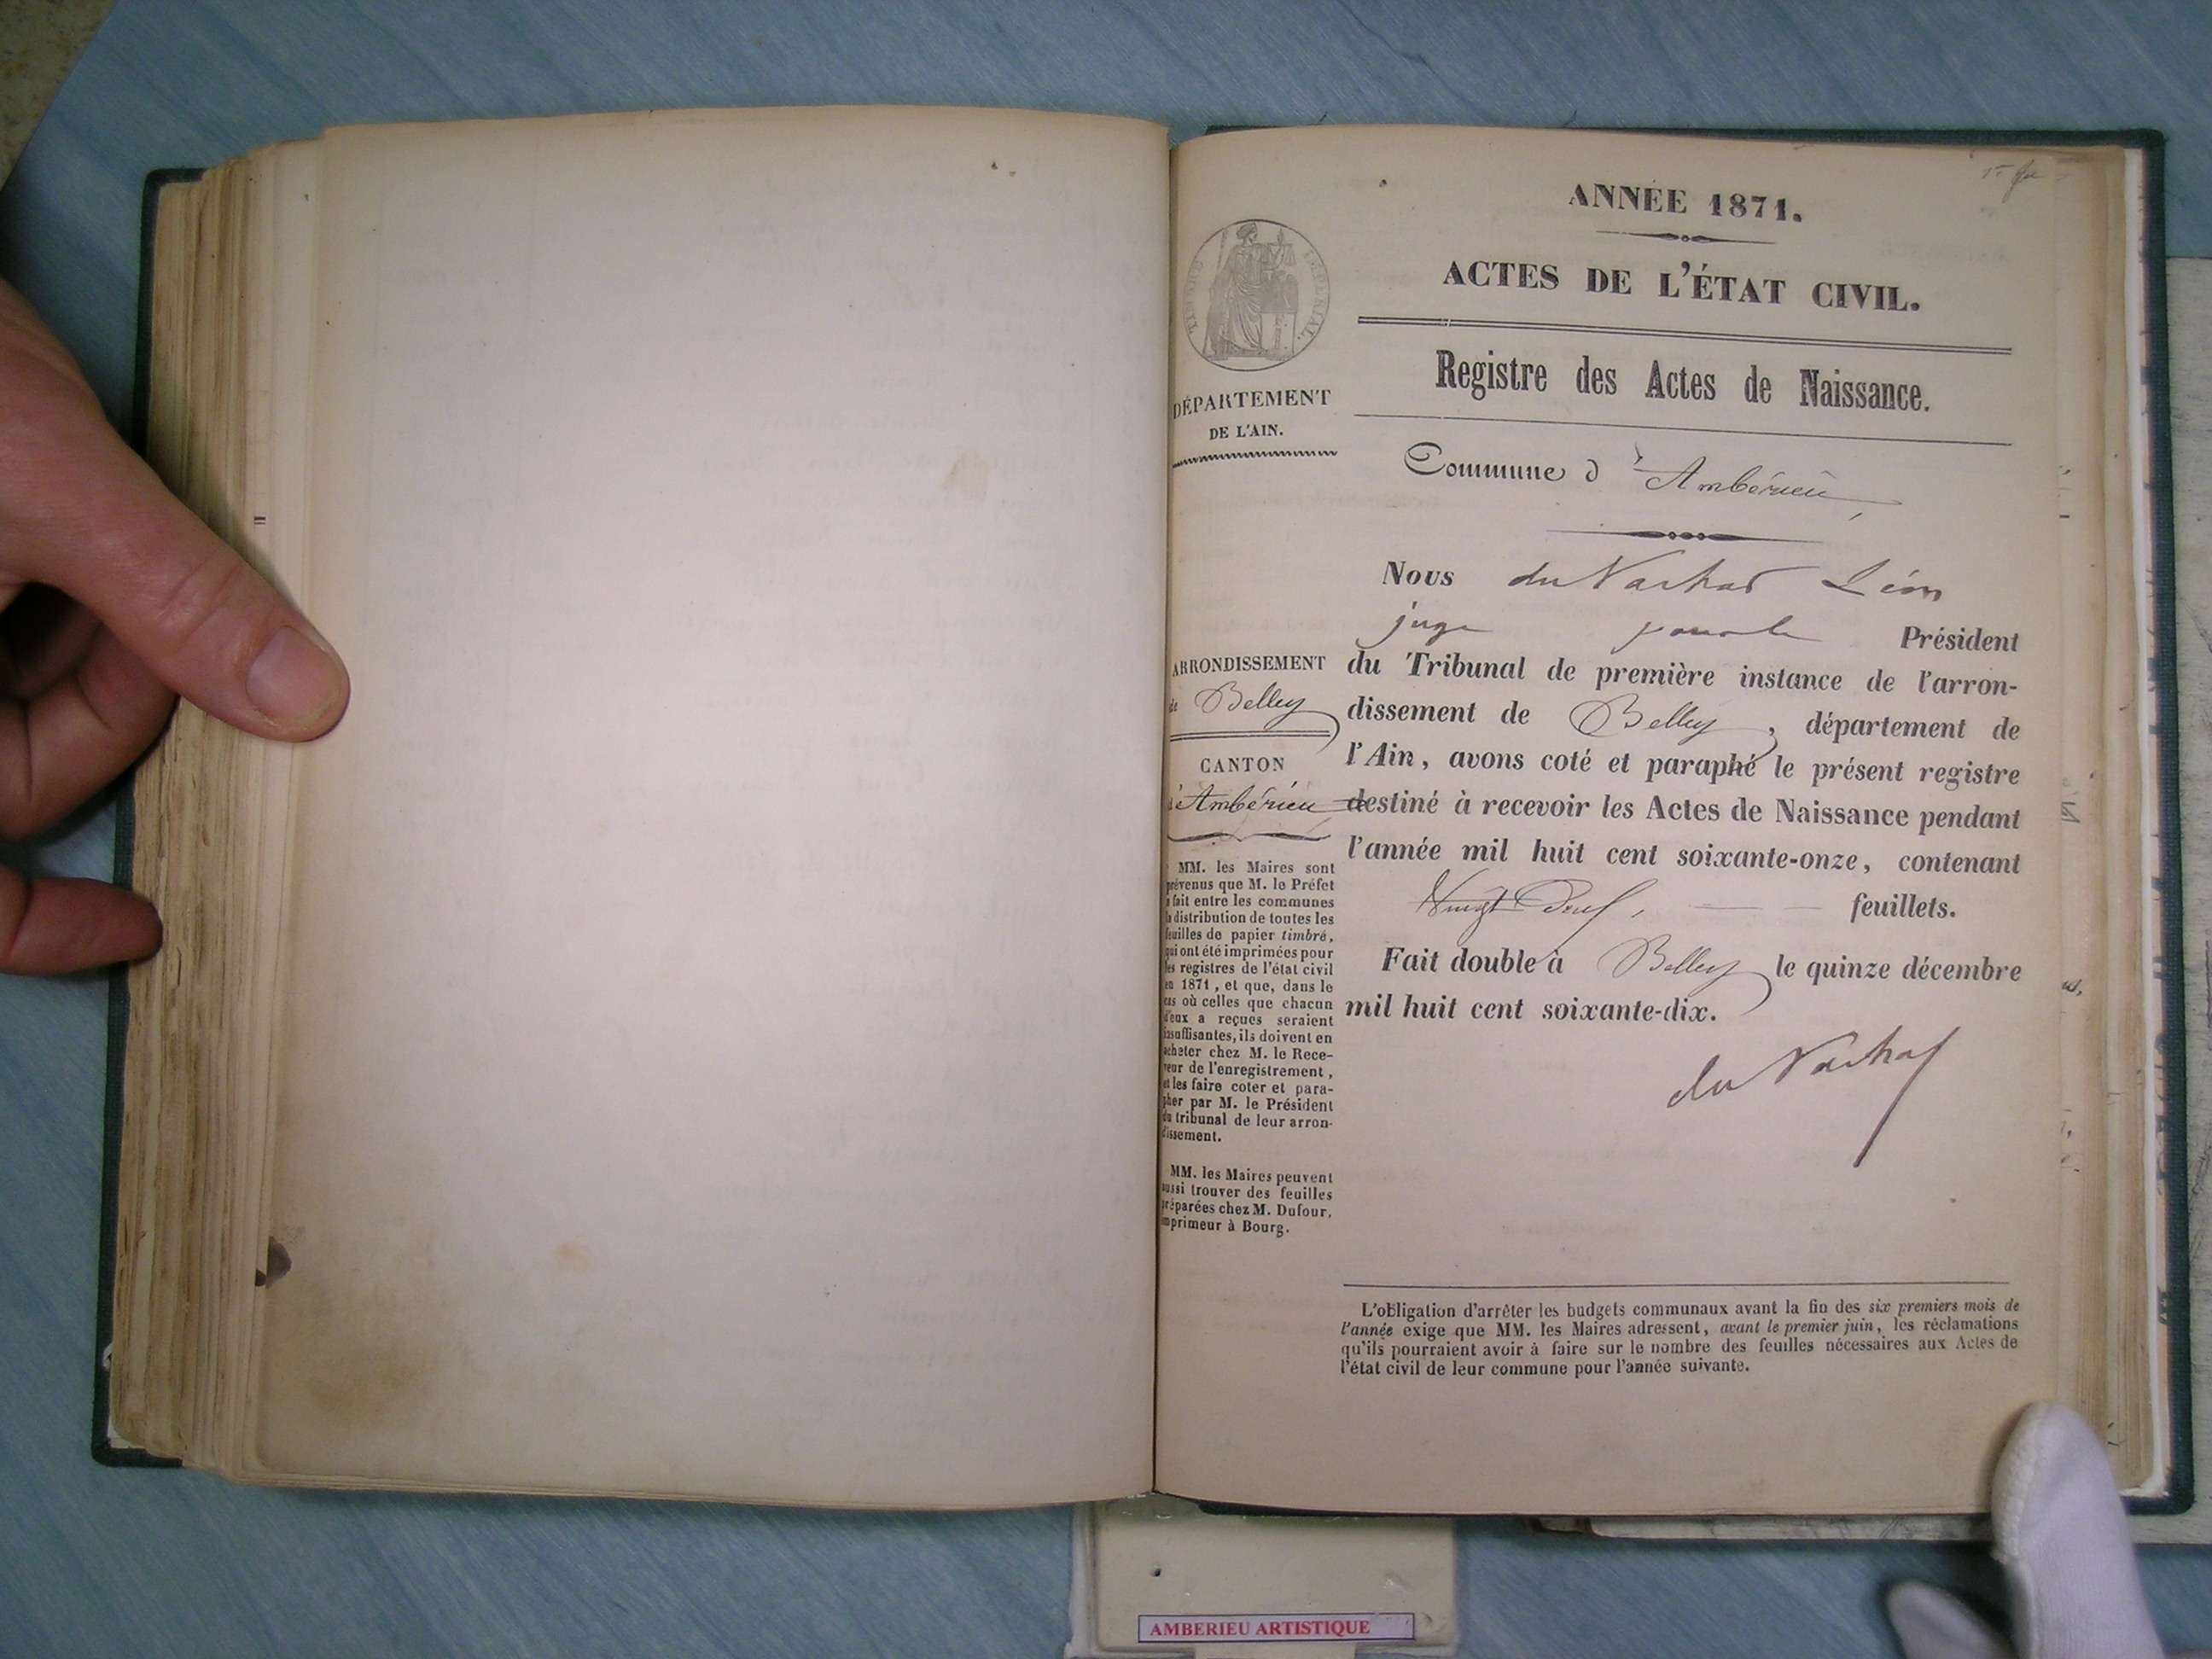 ANNÉE 1871.
ACTES DE L'ÉTAT CIVIL.
Registre des Actes de Naissance.
Commune d'Ambérieu
DÉPARTEMENT
DE L'AIN.
ARRONDISSEMENT
de Belley
CANTON
d'Ambérieu
MM. les Maires sont
prévenus que M. le Préfet
a fait entre les communes
la distribution de toutes les
feuilles de papier timbré,
qui ont été imprimées pour
les registres de l'état civil
en 1871, et que, dans le
cas où celles que chacun
d'eux a reçues seraient
insuffisantes, ils doivent en
acheter chez M. le Rece-
veur de l'enregistrement,
et les faire coter et para-
pher par M. le Président
du tribunal de leur arron-
dissement.
MM. les Maires peuvent
aussi trouver des feuilles
préparées chez M. Dufour,
imprimeur à Bourg.
Nous du Léon
juge pour le Président
du Tribunal de première instance de l'arron-
dissement de Belley, département de
l'Ain, avons coté et paraphé le présent registre
destiné à recevoir les Actes de Naissance pendant
l'année mil huit cent soixante-onze, contenant
Vingt feuillets.
Fait double à Belley le quinze décembre
mil huit cent soixante-dix.
du
L'obligation d'arrêter les budgets communaux avant la fin des six premiers mois de
l'année exige que MM. les Maires adressent, avant le premier juin, les réclamations
qu'ils pourraient avoir à faire sur le nombre des feuilles nécessaires aux Actes de
l'état civil de leur commune pour l'année suivante.
AMBERIEU ARTISTIQUE